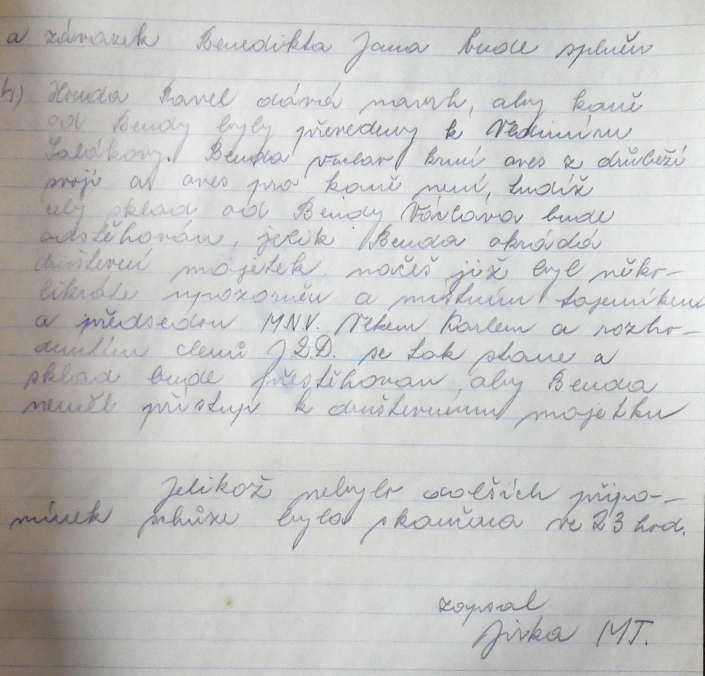 a závazek Benedikta Jana bude splněn
4) Houda Pavel dává navrh, aby koně
od Bendy byly převedeny k Vladimíru
Šalákovy. Benda Václav krmí oves z drůbeží
svojí a oves pro koně není, tudíž
celý sklad od Bendy Václava bude
odstěhován, jelik Benda okrádá
družstevní majetek, načeš již byl něko-
likráte upozorněn a místním tajemníkem
a předsedou M.N.V. Vlkem Karlem a rozho-
dnutím členů J.Z.D. se tak stane a
sklad bude přestěhovan, aby Benda
neměl přístup k družstevnímu majetku
Jelikož nebylo dalších připo-
mínek schůze byla skončena ve 23 hod.
zapsal
Jirka MT.